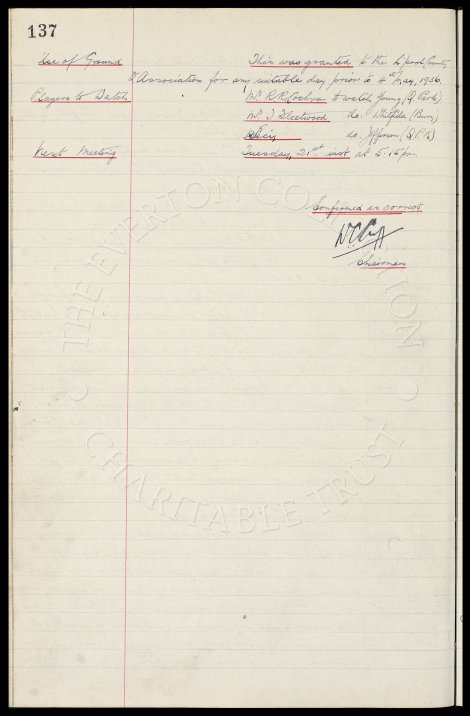 137
Use of Ground This was granted to the L'pool County
Association for any suitable day prior to 4th May, 1936.
Players to Watch Mr. R.R. Cochran to watch Young (Q. Park)
Mr. J. Fleetwood do. Whitfield (Bury)
do. Jefferson (Q.P.R)
Next Meeting Tuesday, 21st inst at 5-15 pm.
Confirmed as correct
Chairman
THE EVERTON COLLECTION
CHARITABLE TRUST